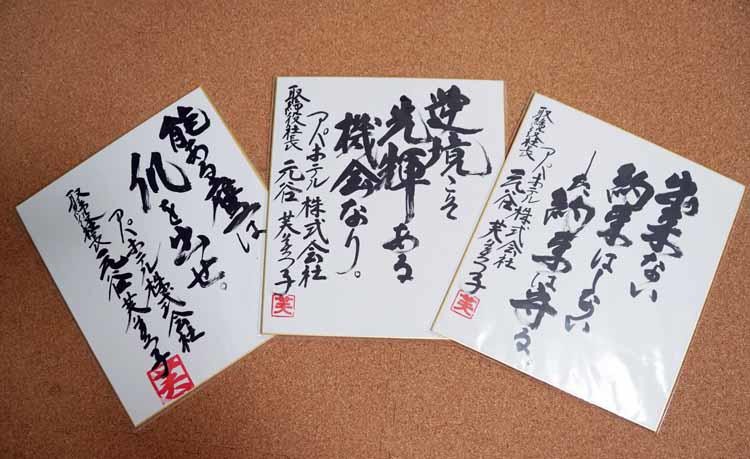 能ある鷹は
爪を出せ。
アパホテル株式会社
取締役社長 元谷芙美子
芙
逆境こそ
光輝ある
機会なり。
アパホテル株式会社
取締役社長 元谷芙美子
芙
出来ない
約束はしない
した約束は守る。
アパホテル株式会社
取締役社長 元谷芙美子
芙